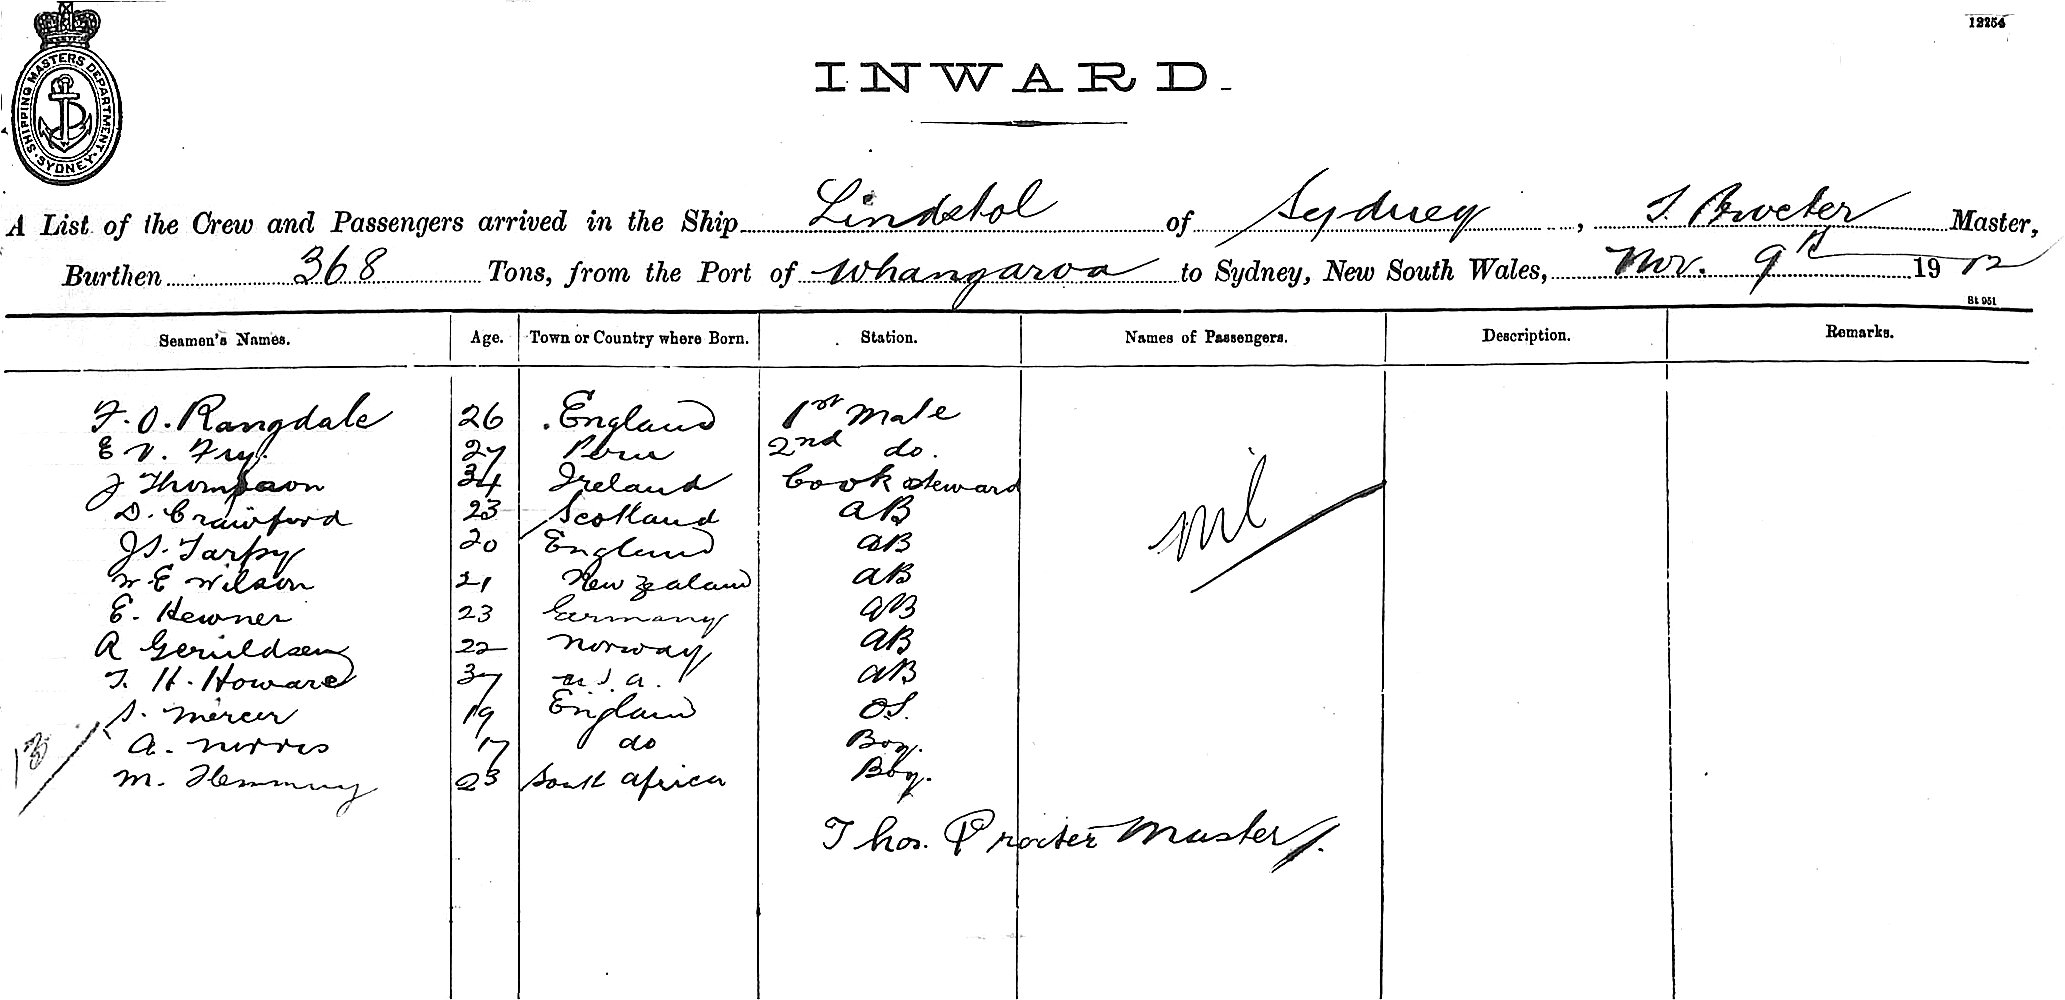 12254
SHIPPING MASTERS DEPARTMENT
SYDNEY
INWARD.
A List of the Crew and Passengers arrived in the Ship Lindstol of Sydney, T. Procter Master,
Burthen 368 Tons, from the Port of Whangaroa to Sydney, New South Wales, Nov. 9th 1912
Bt 951
Seamen's Names. Age. Town or Country where Born. Station. Names of Passengers. Description. Remarks.
F. O. Rangdale 26 England 1st Mate
E V. Fry. 27 Peru 2nd do.
J Thompson 34 Ireland Cook Steward
D. Crawford 23 Scotland AB
J S. Tarpy 20 England AB
nil
W E Wilson 21 New Zealand AB
E. Hewner 23 Germany AB
R Geruldsen 22 Norway AB
T. H. Howard 37 U.S.A. AB
S. Mercer 19 England OS.
A. Norris 17 do Boy.
13
M. Flemming 23 South Africa Boy.
Thos. Procter Master